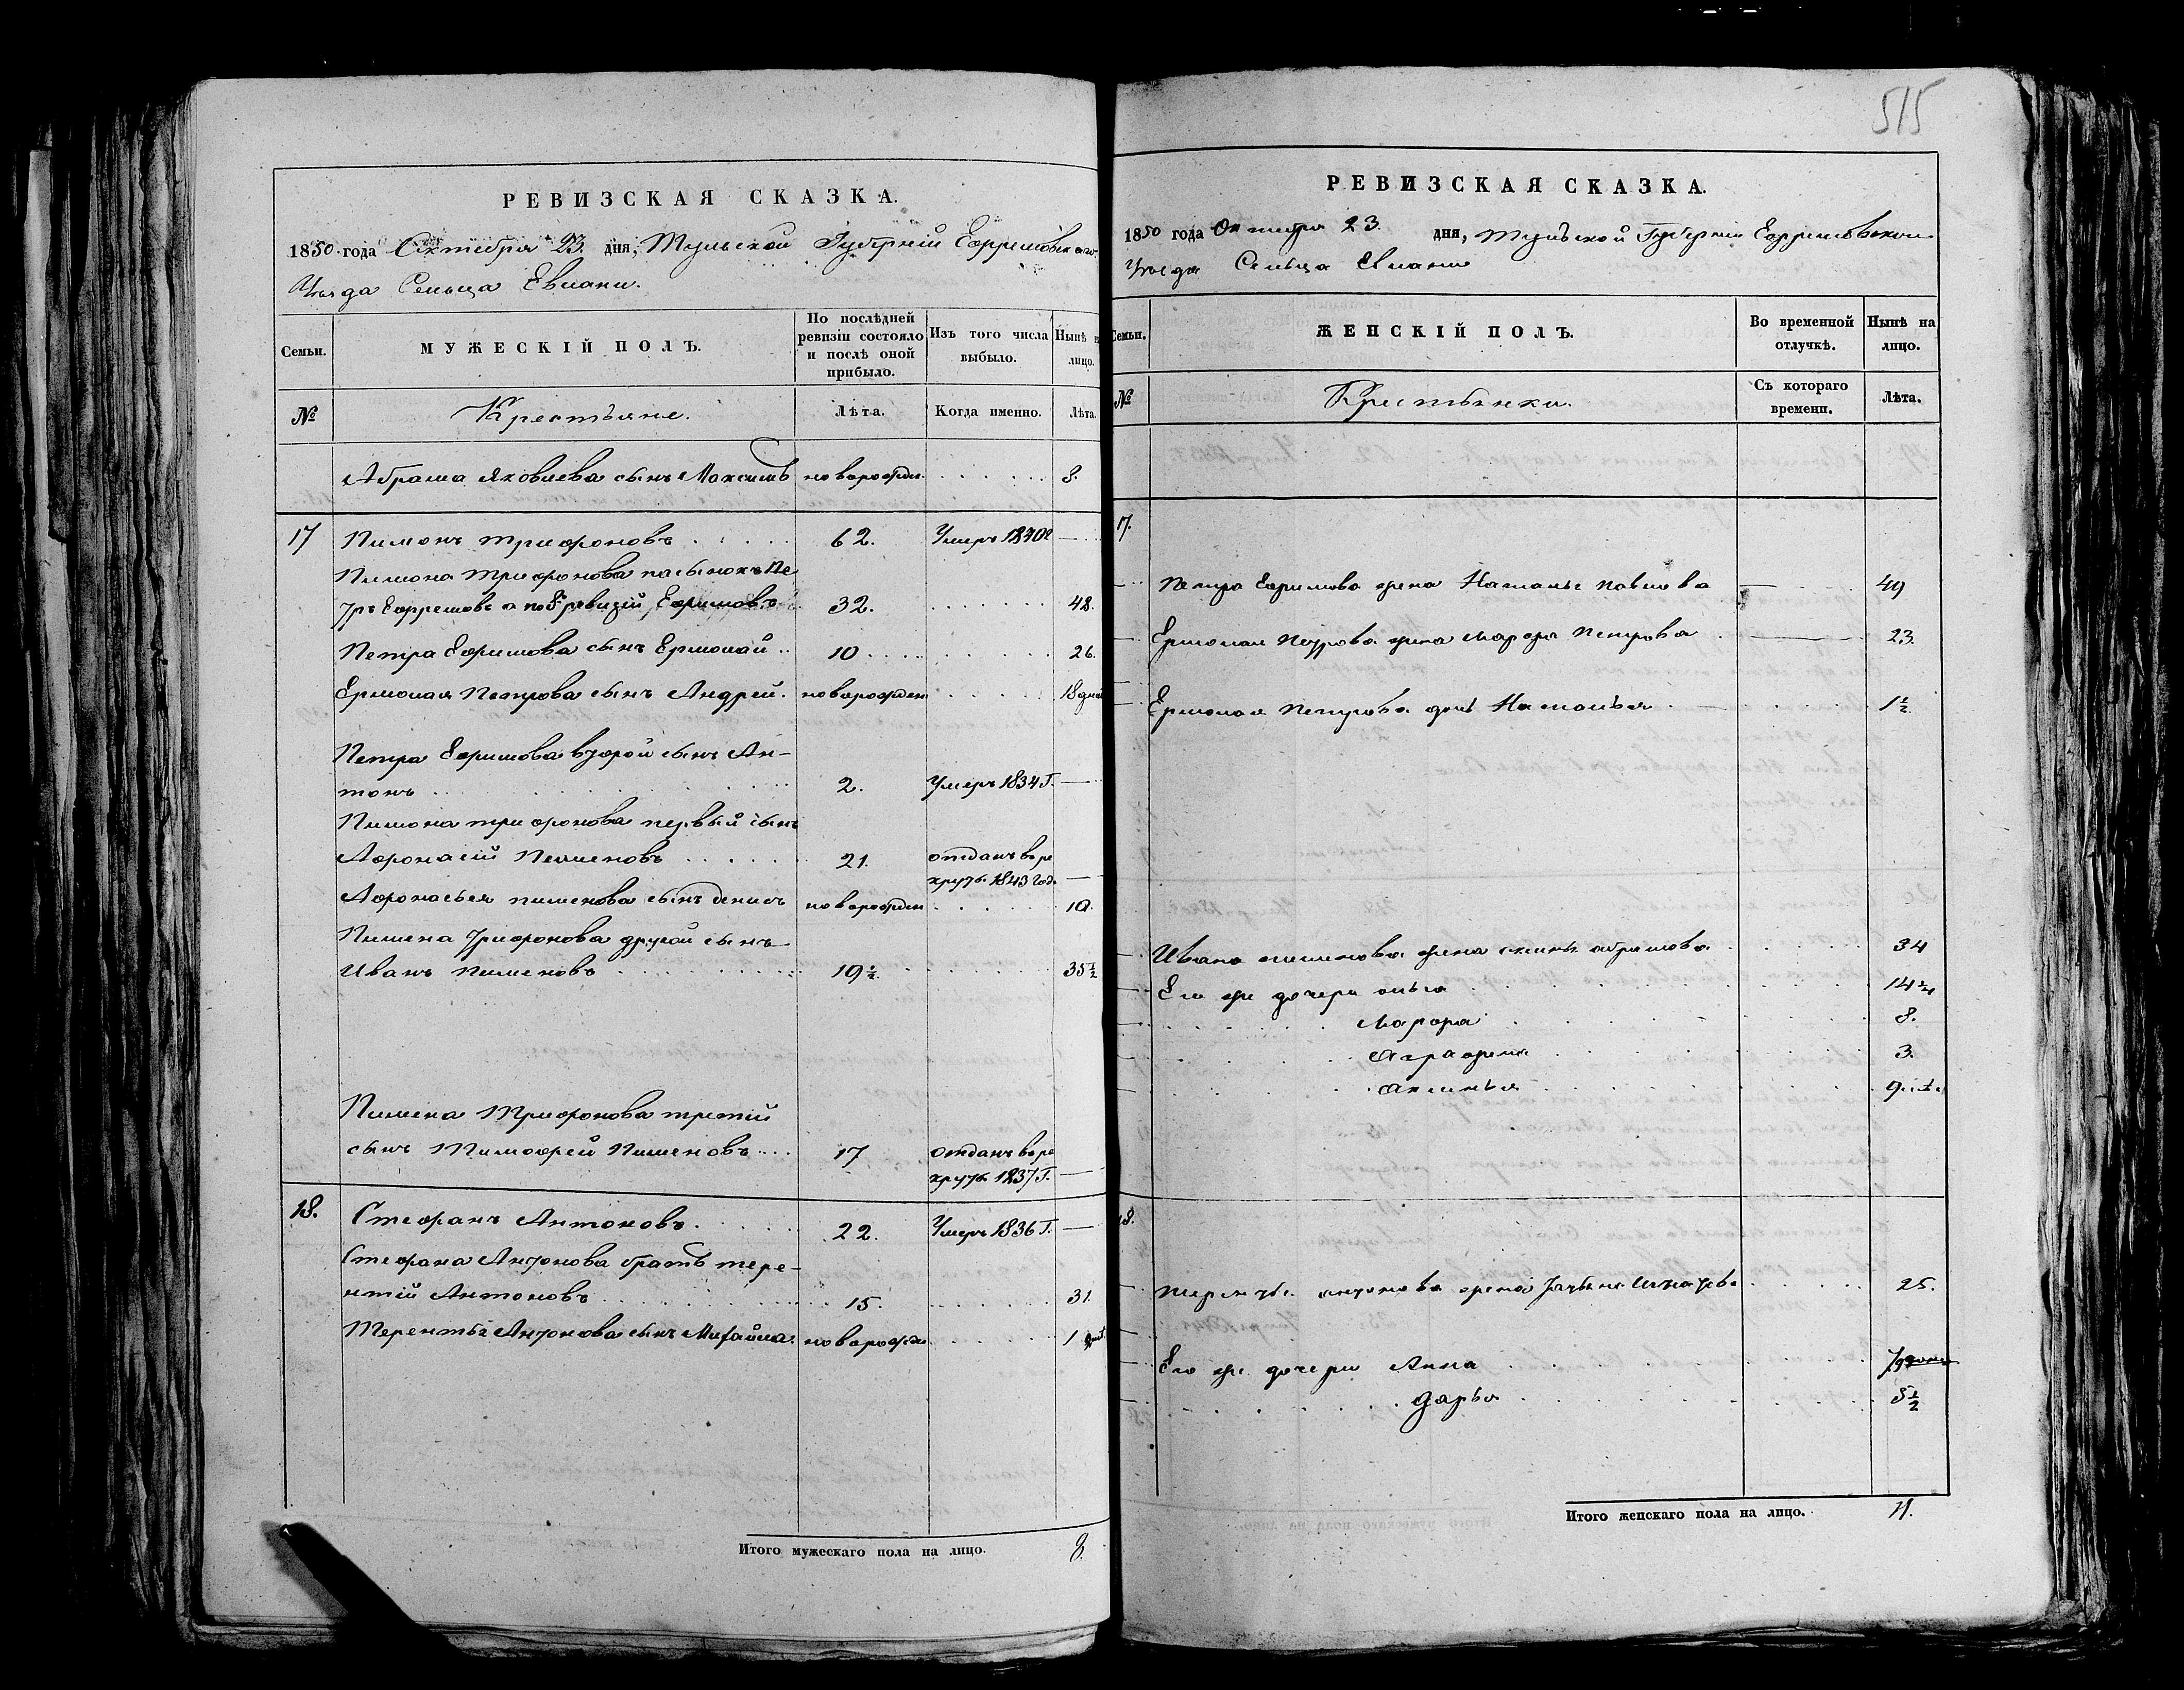 515
РЕВИЗСКАЯ СКАЗКА.
1850 года Октебря 23 дня, Тульской Губерніи Ефремовскаго
Уѣзда Сельца Евлани.
Семьи. МУЖЕСКІЙ ПОЛЪ. По послѣдней ревизіи состояло и послѣ оной прибыло. Изъ того числа выбыло. Нынѣ на лицо.
№ Крестьяне. Лѣта. Когда именно. Лѣта.
Абрама Яковлева сынъ Максимъ новорожден. 8.
17 Пимонъ Трифоновъ 62. Умеръ 1840г —
Пимона Трифонова пасынокъ Пе
тръ Ефремовъ а по 8й ревизій Ефимовъ 32. 48.
Петра Ефимова сынъ Ермолай 10 26.
Ермолая Петрова сынъ Андрей новорожден 18 дней
Петра Ефимова второй сынъ Ан-
тонъ 2. Умеръ 1834 Г. —
Пимона Трифонова первый сынъ
Афонасій Пименовъ 21. отданъ в ре
круты 1843 год. —
Афонасья пименова сынъ денисъ новорожден 10.
Пимена Трифонова другой сынъ
Иванъ пименовъ 19 1/2 35 1/2
Пимена Трифонова третій
сынъ Тимофей Пименовъ 17 отданъ в ре
круты 1837 Г. —
18. Стефанъ Антоновъ 22. Умеръ 1836 Г. —
Стефана Антонова братъ тере-
нтій Антоновъ 15. 31.
Терентья Антонова сынъ Михайла новорожден 1
Итого мужескаго пола на лицо. 8.
РЕВИЗСКАЯ СКАЗКА.
1850 года Октебря 23 дня, Тульской Губерніи Ефремовскаго
Уѣзда Сельца Евлани
Семьи. ЖЕНСКІЙ ПОЛЪ. Во временной отлучкѣ. Нынѣ на лицо.
№ Крестьянки. Съ котораго времени. Лѣта.
17.
Петра Ефимова жена Наталья павлова — 49
Ермолая Петрова жена марфа Петрова — 23.
Ермолая Петрова дочь Наталья 1 1/2
Ивана пименова жена аксинья абрамова 34
Его же дочери ольга 14
Марфа 8.
аграфена 3.
аксинья
18.
терентья антонова жена татьяна Игнатова 25.
Его же дочери Анна 7
дарья 5 1/2
Итого женскаго пола на лицо. 11.